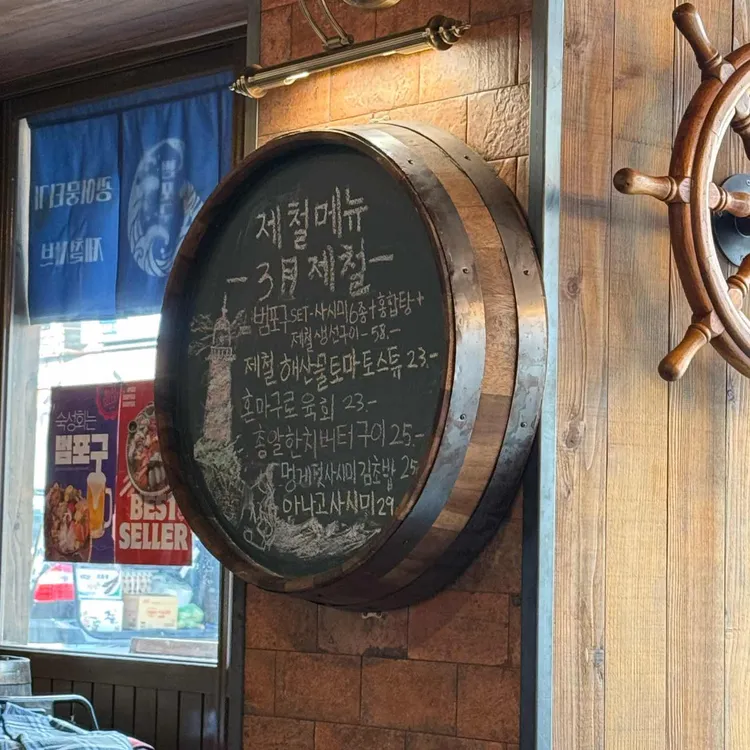 제철메뉴
- 3월 제철 -
범포구SET·사시미6종+홍합탕+
제철생선구이-58.-
제철 해산물토마토스튜 23.-
혼마구로육회 23.-
총알한치버터구이 25.-
멍게젓사시미김초밥 25
아나고사시미29
광어물타기
제철사브
범포구
숙성회는
범포구
BEST
SELLER